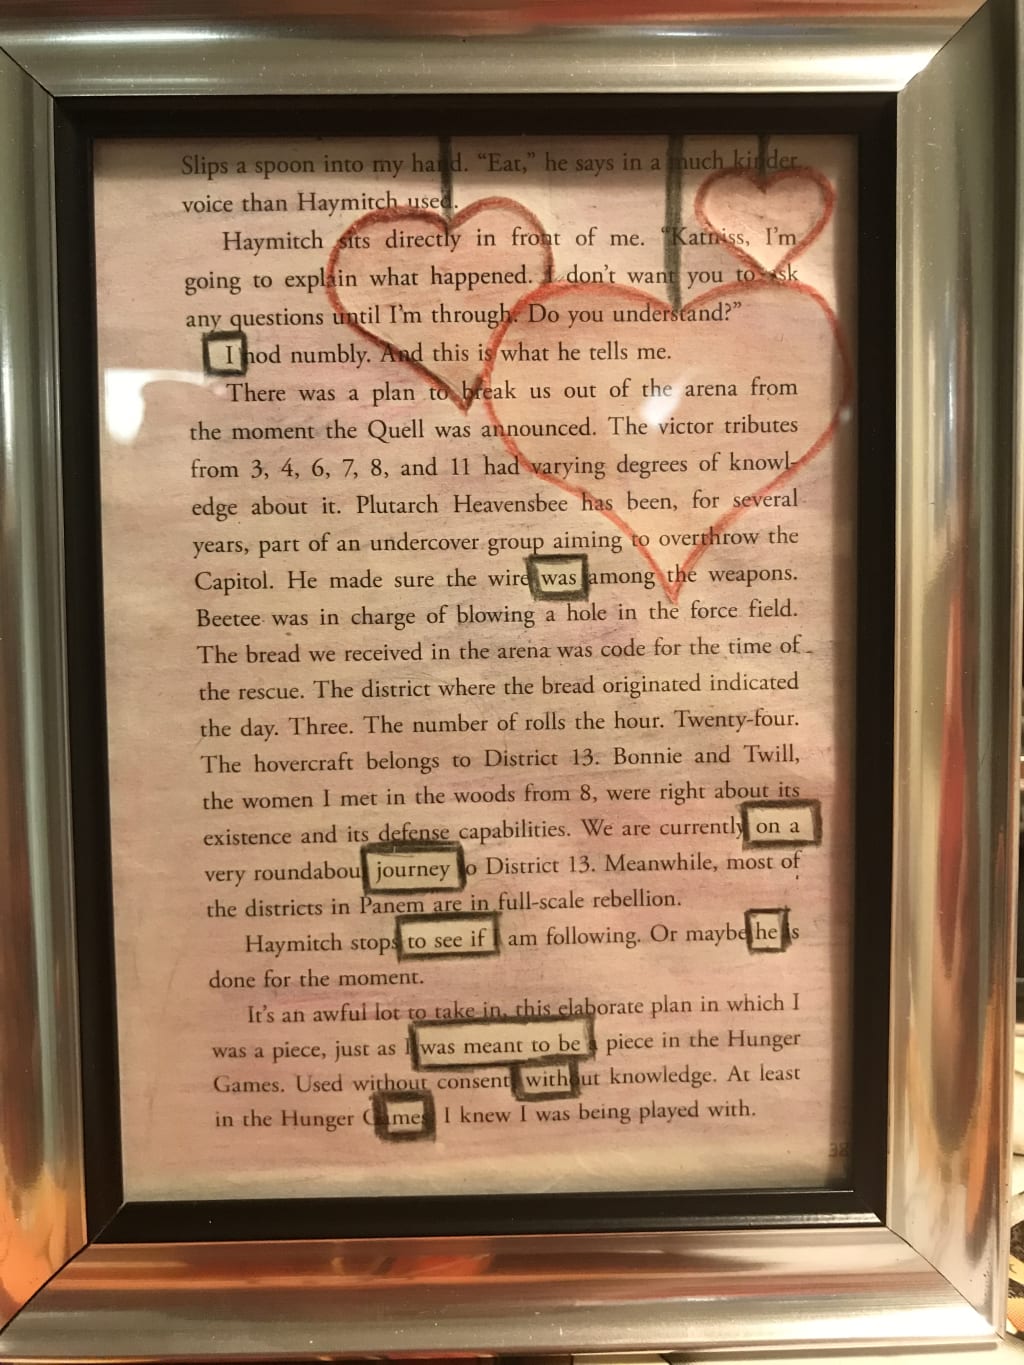 Slips a spoon into my hand. “Eat,” he says in a much kinder
voice than Haymitch used.
Haymitch sits directly in front of me. “Katniss, I’m
going to explain what happened. I don’t want you to ask
any questions until I’m through. Do you understand?”
I nod numbly. And this is what he tells me.
There was a plan to break us out of the arena from
the moment the Quell was announced. The victor tributes
from 3, 4, 6, 7, 8, and 11 had varying degrees of knowl-
edge about it. Plutarch Heavensbee has been, for several
years, part of an undercover group aiming to overthrow the
Capitol. He made sure the wire was among the weapons.
Beetee was in charge of blowing a hole in the force field.
The bread we received in the arena was code for the time of
the rescue. The district where the bread originated indicated
the day. Three. The number of rolls the hour. Twenty-four.
The hovercraft belongs to District 13. Bonnie and Twill,
the women I met in the woods from 8, were right about its
existence and its defense capabilities. We are currently on a
very roundabou journey o District 13. Meanwhile, most of
the districts in Panem are in full-scale rebellion.
Haymitch stops to see if I am following. Or maybe he is
done for the moment.
It’s an awful lot to take in, this elaborate plan in which I
was a piece, just as I was meant to be a piece in the Hunger
Games. Used without consent, without knowledge. At least
in the Hunger Games, I knew I was being played with.